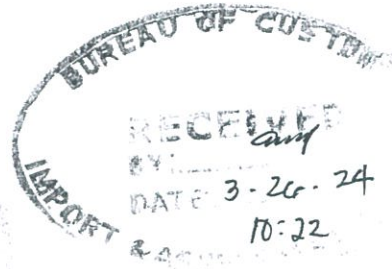 BUREAU OF CUSTOMS
RECEIVED
BY:
DATE: 3-26-24
10:22
IMPORT &